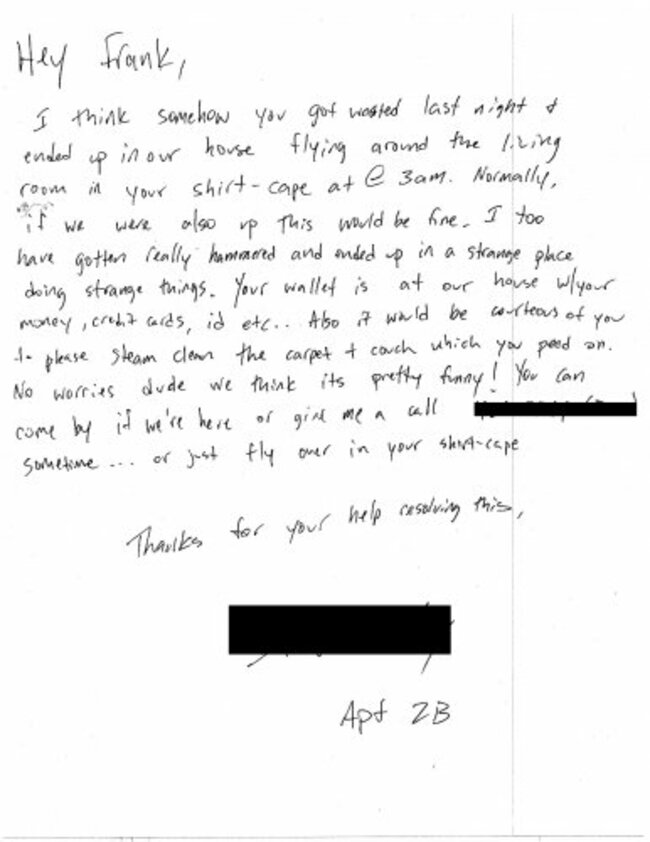 Hey Frank,
I think somehow you got wasted last night +
ended up in our house flying around the living
room in your shirt-cape at @ 3am. Normally,
if we were also up this would be fine. I too
have gotten really hammered and ended up in a strange place
doing strange things. Your wallet is at our house w/your
money, credit cards, id etc... Also it would be courteous of you
to please steam clean the carpet + couch which you peed on.
No worries dude we think its pretty funny! You can
come by if we're here or give me a call
sometime... or just fly over in your shirt-cape
Thanks for your help resolving this,
Apt 2B